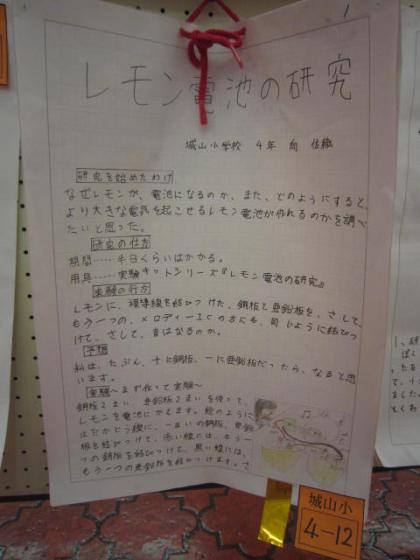 レモン電池の研究
城山小学校 4年
研究を始めたわけ
なぜレモンが、電池になるのか、また、どのようにすると、
より大きな電気を起こせるレモン電池が作れるのかを調べ
たいと思った。
研究の仕方
期間……半日くらいはかかる。
用具……実験キットシリーズ『レモン電池の研究』
実験の行方
レモンに、 導線を結びつけた、銅板と亜鉛板を、さして、
もう一つの、メロディーICのほうにも、同じように結びつ
けて、さして、音はなるのか。
予想
私は、たぶん、+に銅板、-に亜鉛板だったら、なると思
います。
実験~まず作って実験~
銅板2まい、亜鉛板2まいを使って、
レモンを電池にかえます。絵のように
はだかどう線に、一まいの銅板、亜鉛
板を結びつけて、赤い線には、もう一
つの銅板を結びつけて、黒い線には、
もう一つの亜鉛板を結びつけます。さ
城山小
4-12